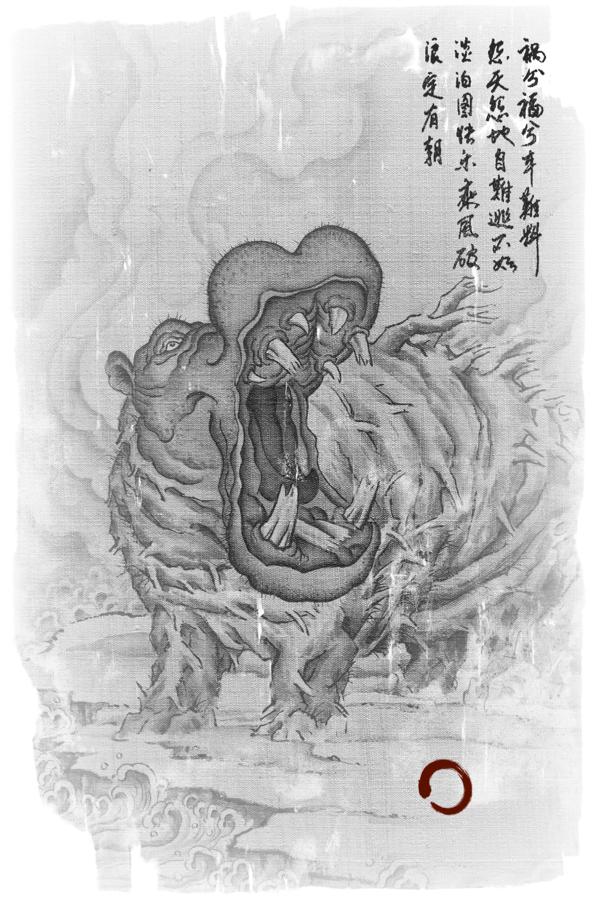 禍兮福兮率難料
怨天怨地自難逃不如
淡泊圖快樂乘風破
浪定有朝